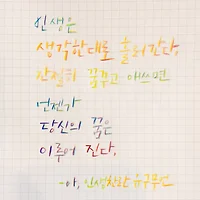 인생은
생각한대로 흘러간다.
간절히 꿈꾸고 애쓰면
언젠가
당신의 꿈은
이루어 진다.
-아, 인생찬란 유구무언